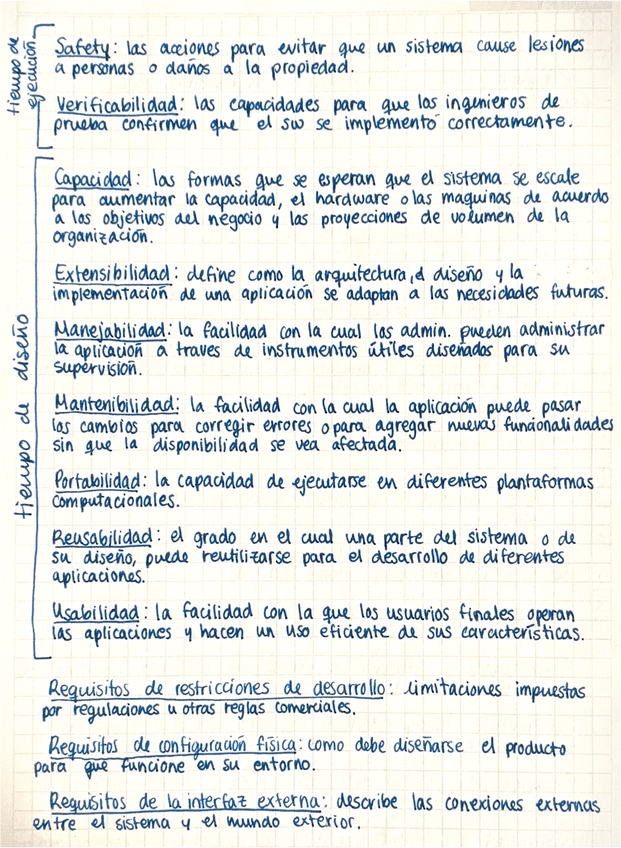 tiempo de
ejecución
Safety: las acciones para evitar que un sistema cause lesiones
a personas o daños a la propiedad.
Verificabilidad: las capacidades para que los ingenieros de
prueba confirmen que el sw se implementó correctamente.
tiempo de diseño
Capacidad: las formas que se esperan que el sistema se escale
para aumentar la capacidad, el hardware o las maquinas de acuerdo
a los objetivos del negocio y las proyecciones de volumen de la
organización.
Extensibilidad: define como la arquitectura, el diseño y la
implementación de una aplicación se adaptan a las necesidades futuras.
Manejabilidad: la facilidad con la cual los admin. pueden administrar
la aplicación a traves de instrumentos útiles diseñados para su
supervisión.
Mantenibilidad: la facilidad con la cual la aplicación puede pasar
los cambios para corregir errores o para agregar nuevas funcionalidades
sin que la disponibilidad se vea afectada.
Portabilidad: la capacidad de ejecutarse en diferentes plantaformas
computacionales.
Reusabilidad: el grado en el cual una parte del sistema o de
su diseño, puede reutilizarse para el desarrollo de diferentes
aplicaciones.
Usabilidad: la facilidad con la que los usuarios finales operan
las aplicaciones y hacen un uso eficiente de sus características.
Requisitos de restricciones de desarrollo: limitaciones impuestas
por regulaciones u otras reglas comerciales.
Requisitos de configuración física: como debe diseñarse el producto
para que funcione en su entorno.
Requisitos de la interfaz externa: describe las conexiones externas
entre el sistema y el mundo exterior.